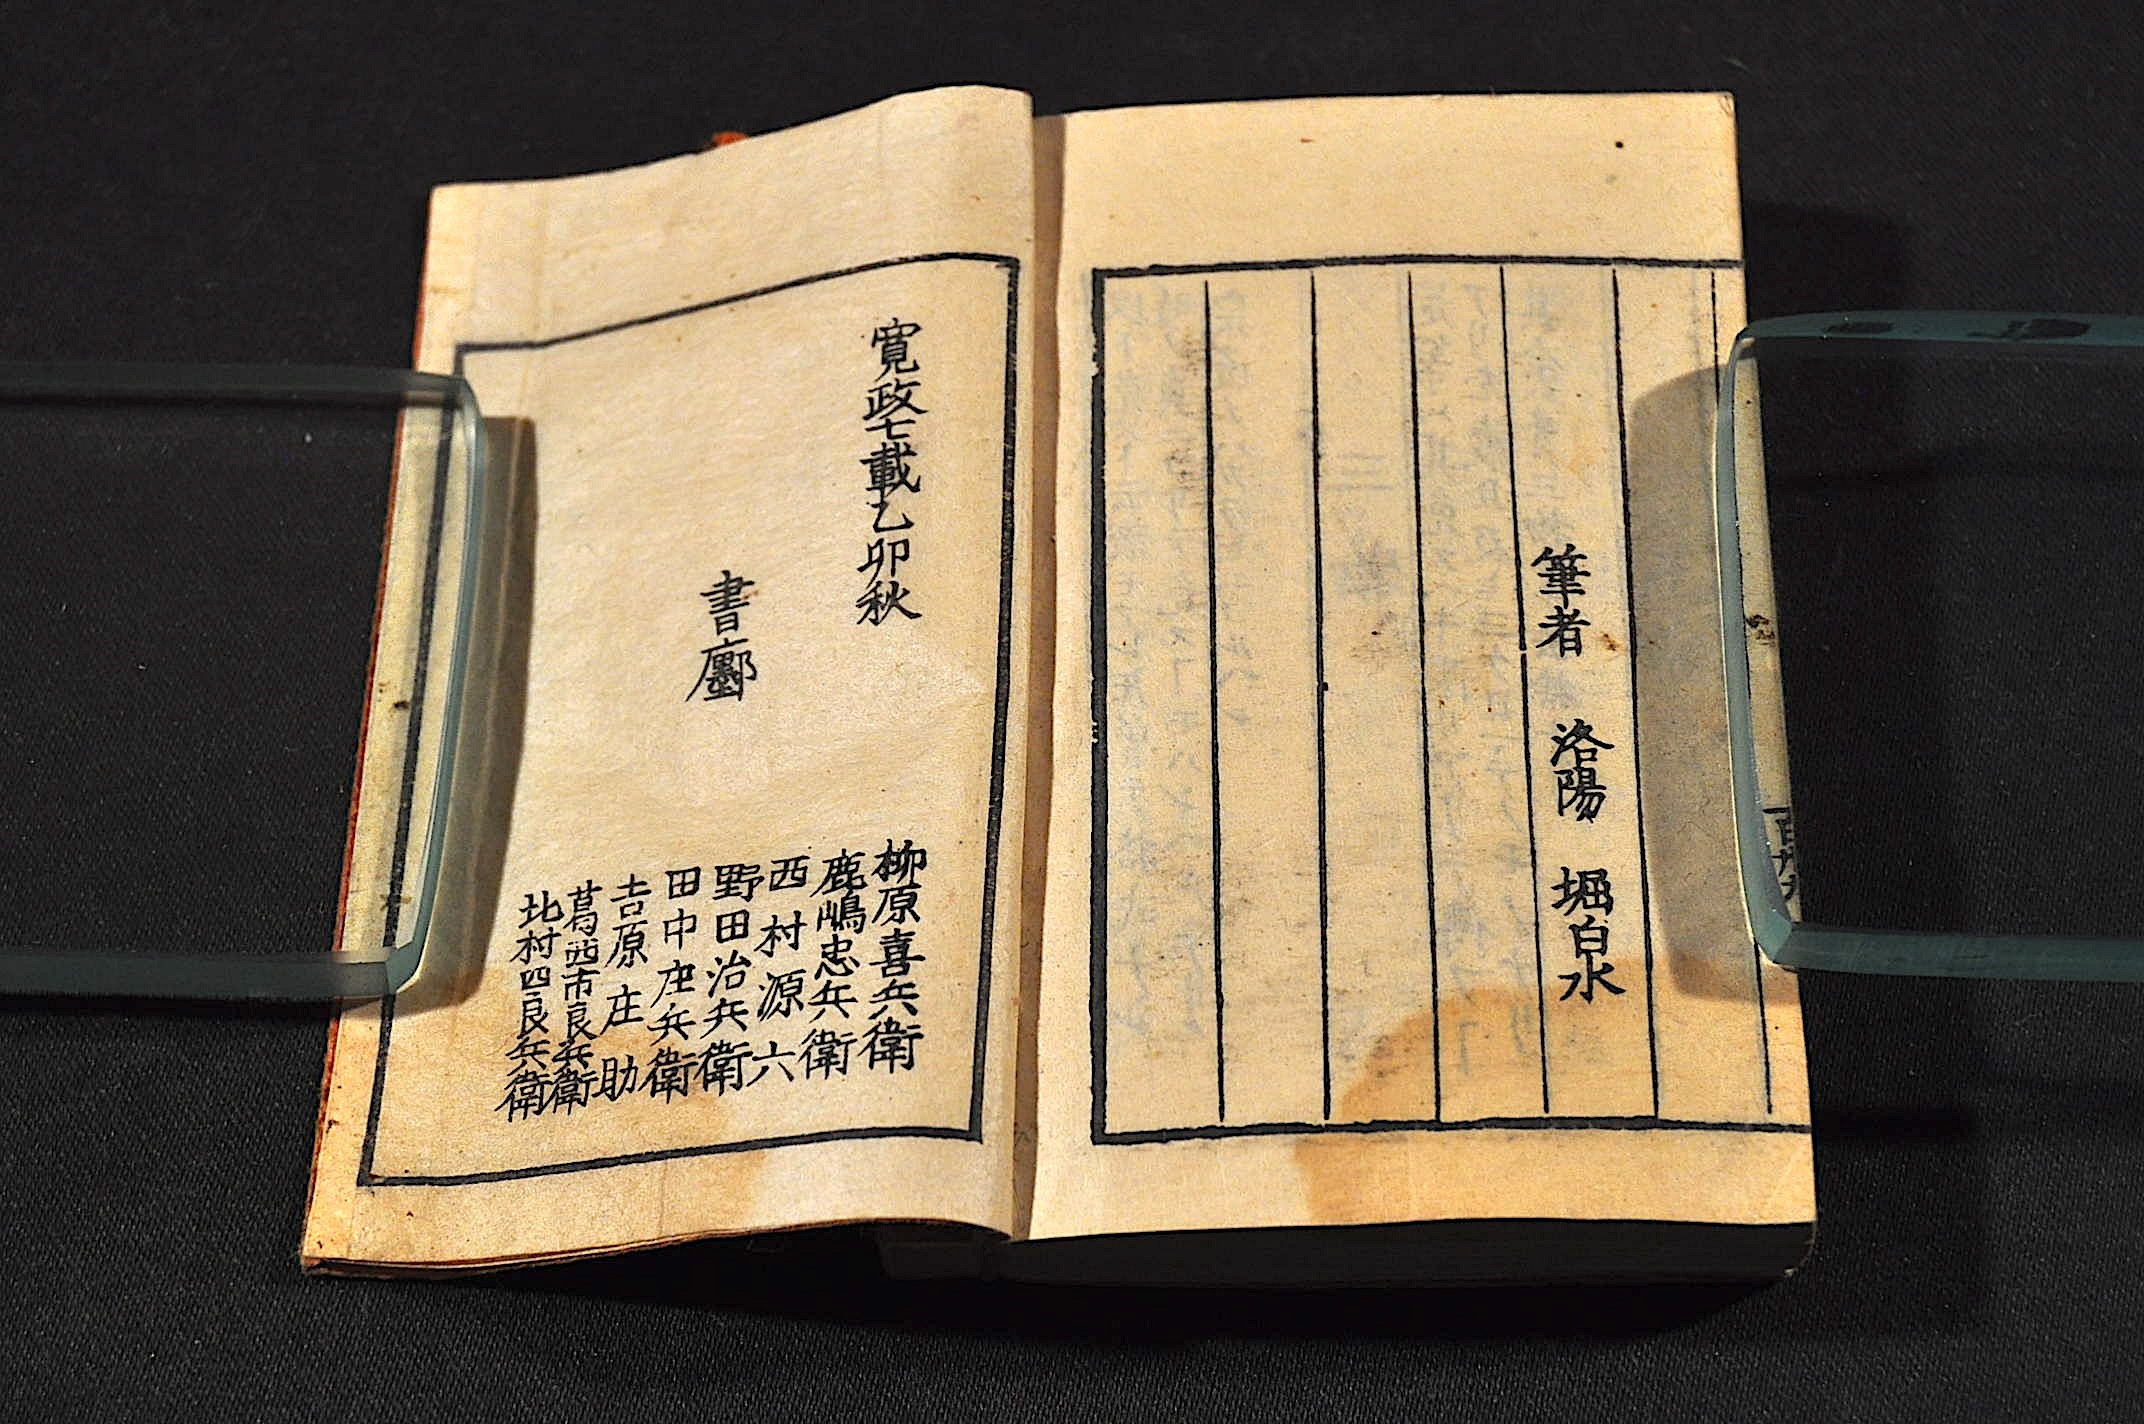 筆者 洛陽 堀白水
寛政七載乙卯秋
書鄽
柳原喜兵衛
鹿嶋忠兵衛
西村源六
野田治兵衛
田中庄兵衛
吉原庄助
葛西市良兵衛
北村四良兵衛